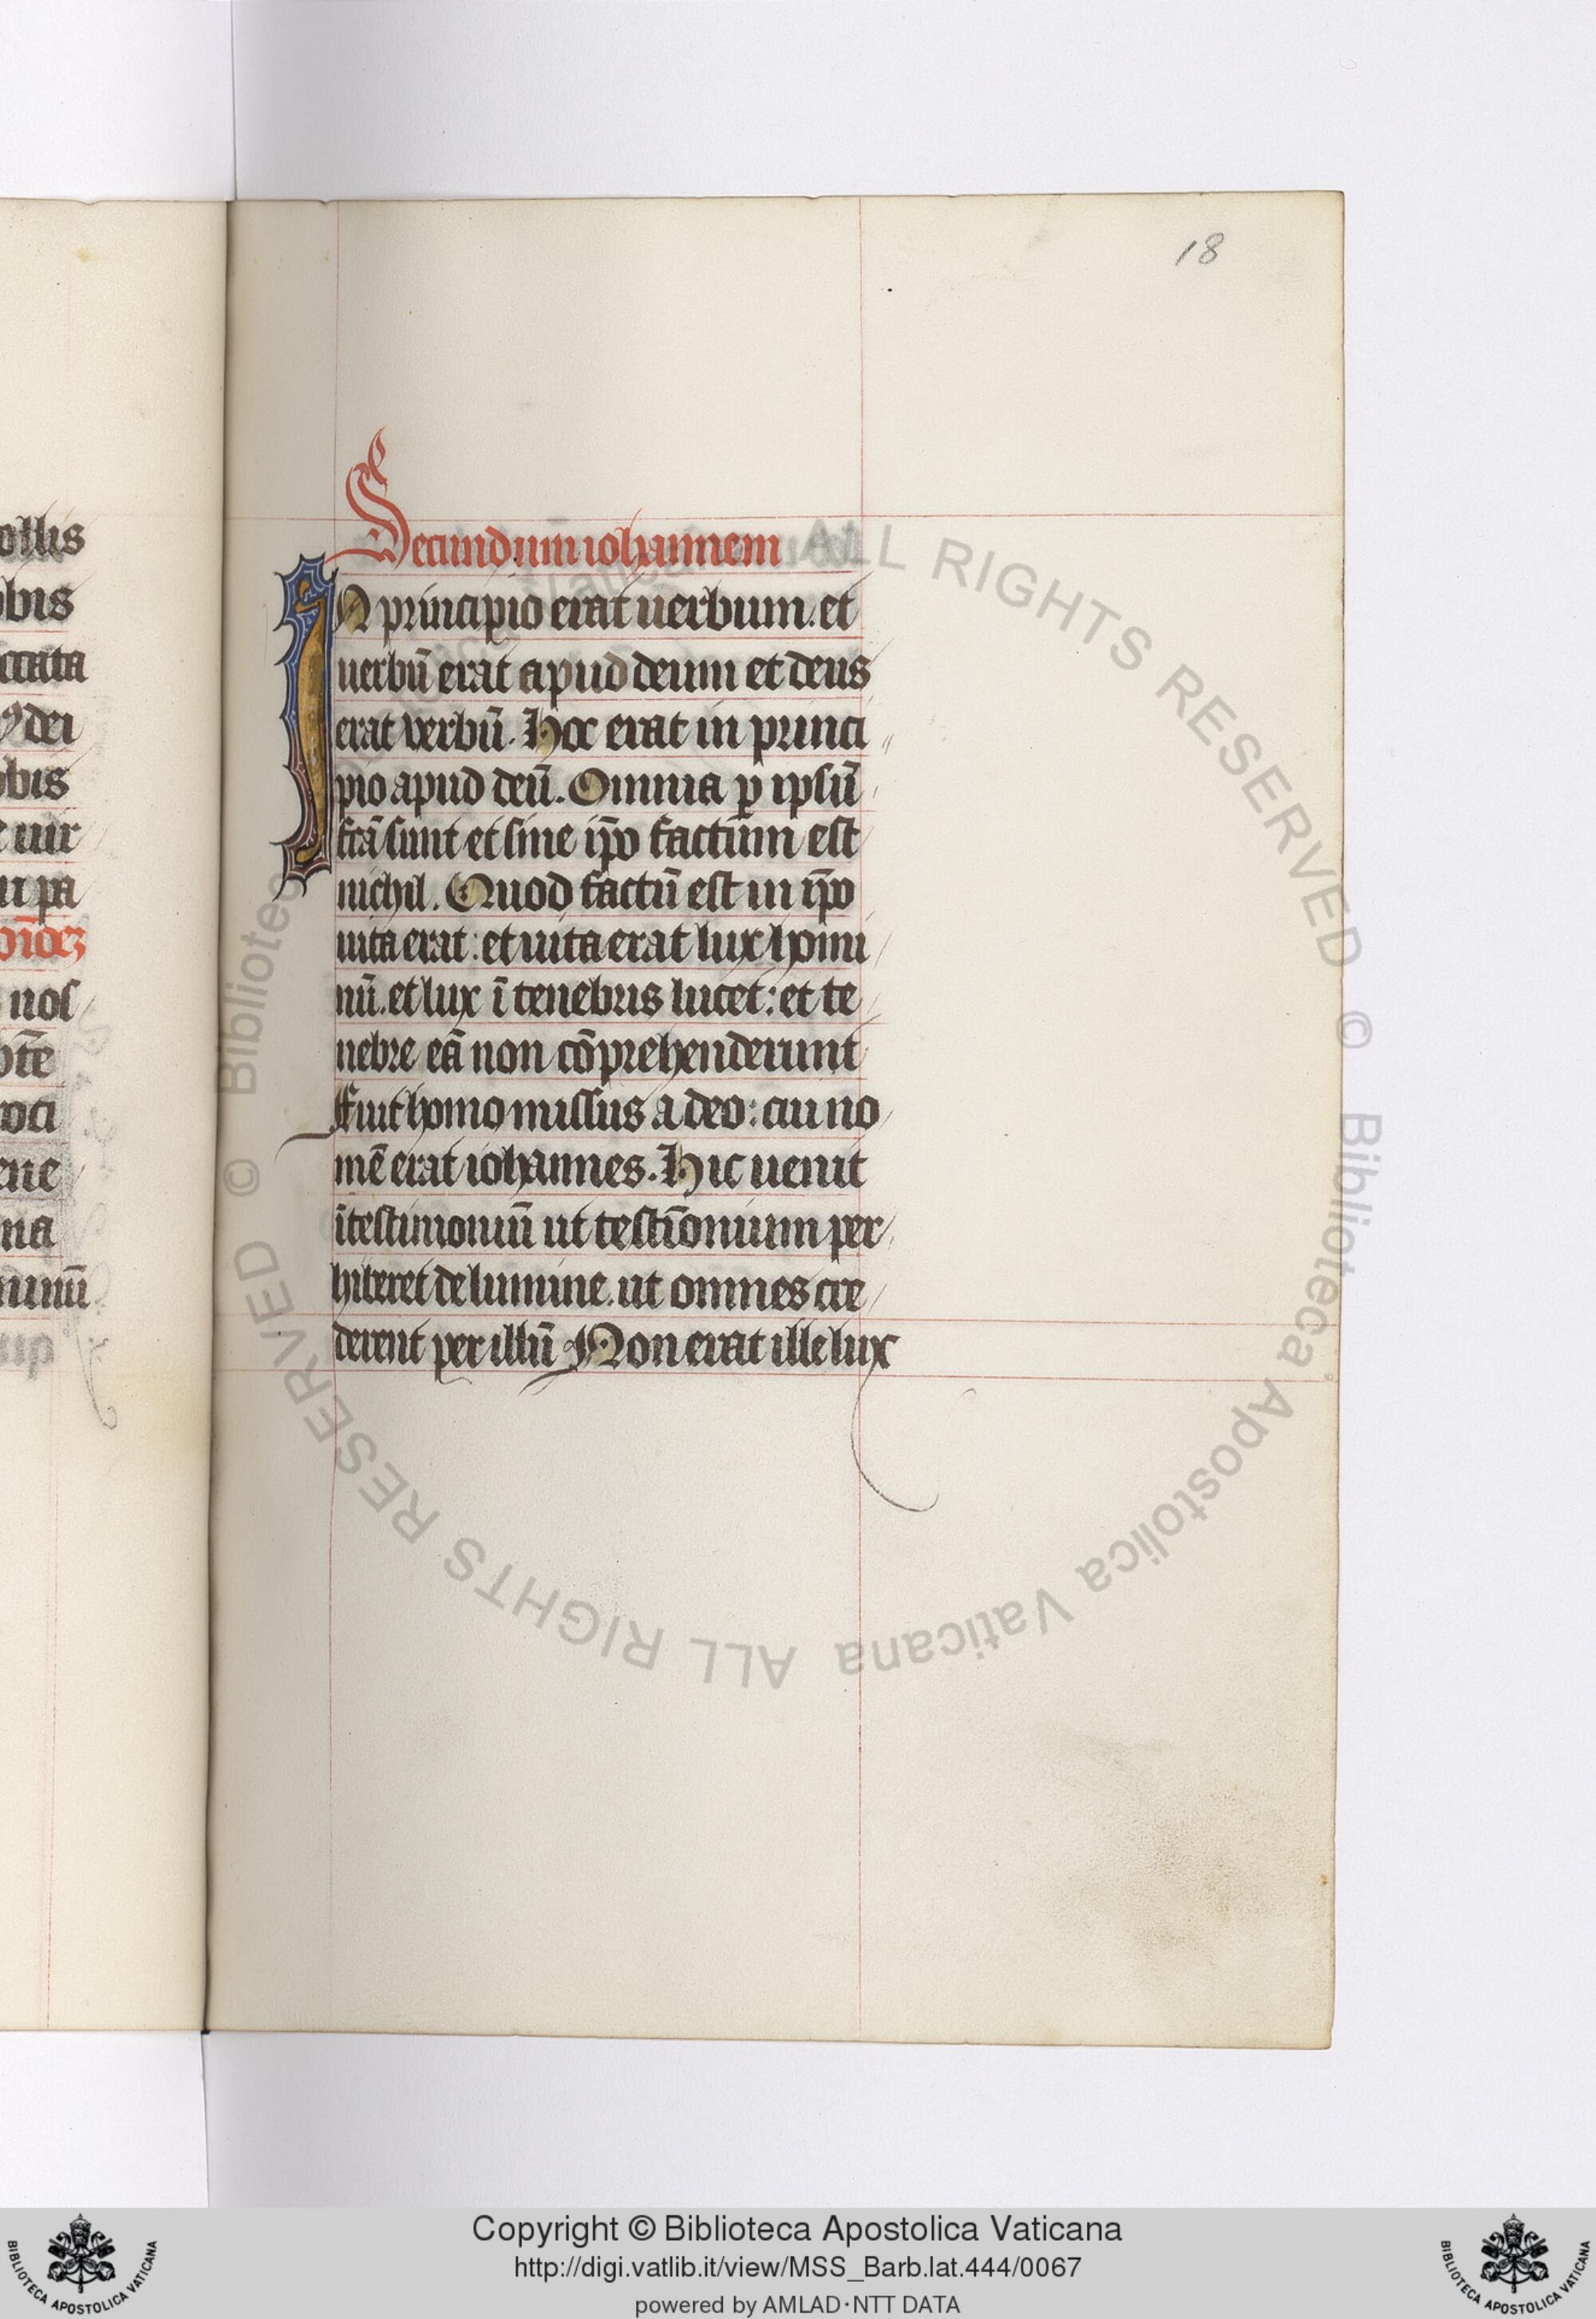 18
ollis
obis
ctata
dei
obis
e uir
ui pa
nos
oci
ene
na
Secundum iohannem
IN principio erat uerbum. et
uerbū erat apud deum et deus
erat verbū. Hoc erat in princi
pio apud deū. Omnia ꝑ ipsū
fc̄a sunt et sine ip̄o factum est
nichil. Quod factū est in ip̄o
uita erat: et uita erat lux homi
nū. et lux ī tenebris lucet: et te
nebre eā non cōprehenderunt
Fuit homo missus a deo: cui no
mē erat iohannes. Hic uenit
ī testimoniū ut testīonium per
hiberet de lumine. ut omnes cre
derent per illū Non erat ille lux
© Biblioteca Apostolica Vaticana ALL RIGHTS RESERVED © Biblioteca Apostolica Vaticana ALL RIGHTS RESERVED
Copyright © Biblioteca Apostolica Vaticana
http://digi.vatlib.it/view/MSS_Barb.lat.444/0067
powered by AMLAD·NTT DATA
BIBLIOTECA APOSTOLICA VATICANA
BIBLIOTECA APOSTOLICA VATICANA